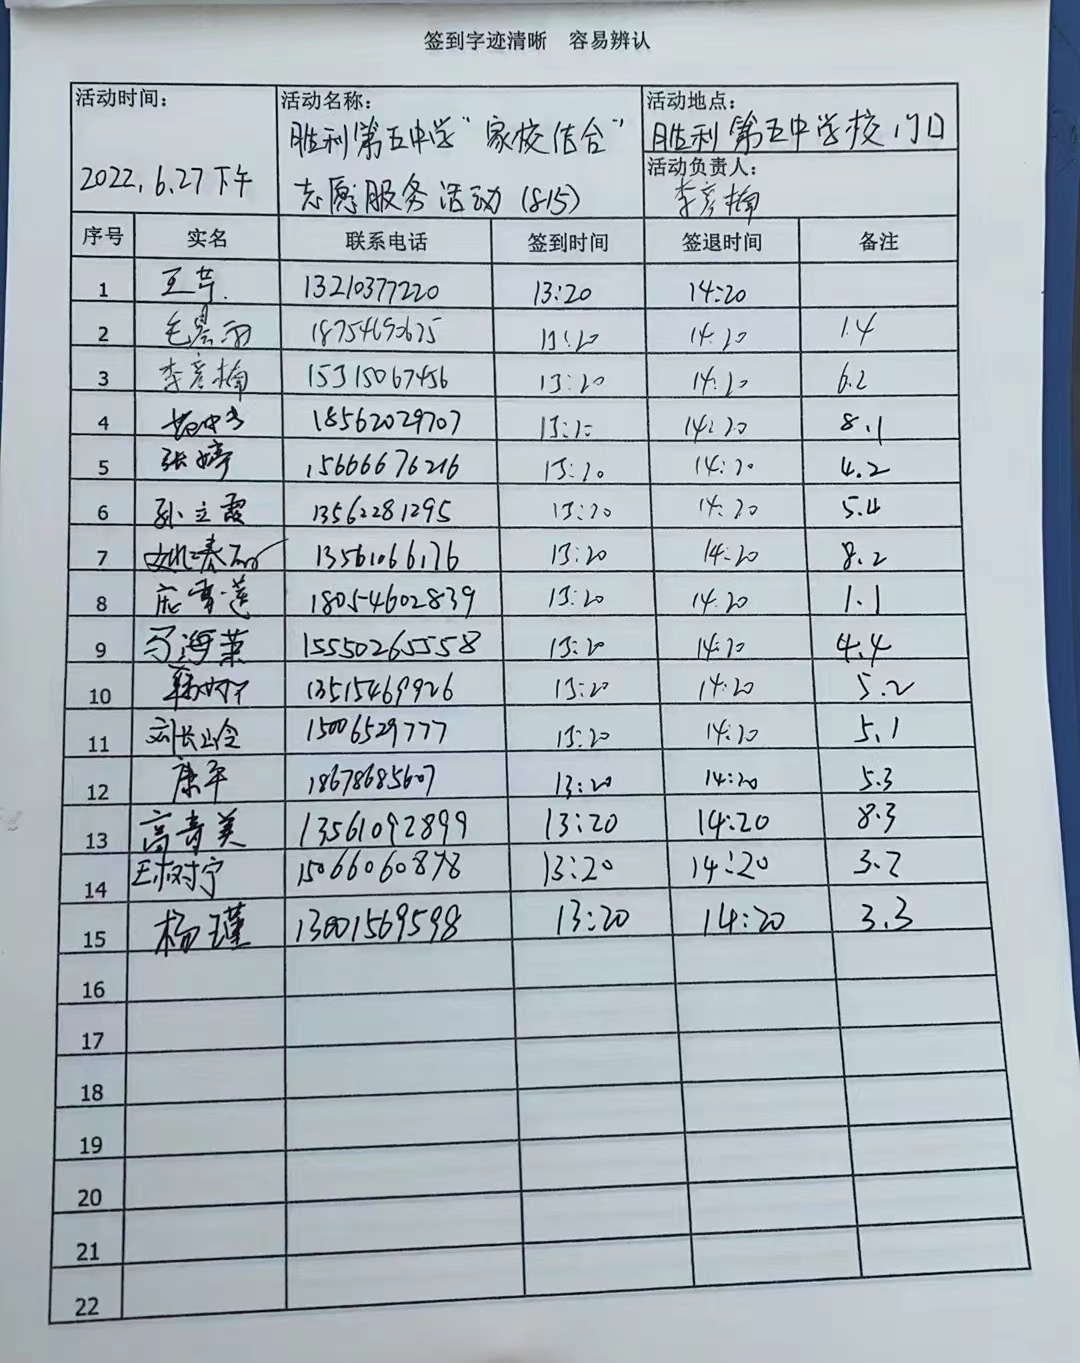 签到字迹清晰 容易辨认
活动时间： 2022.6.27下午
活动名称： 胜利第五中学“家校结合”
志愿服务活动(815)
活动地点： 胜利第五中学校门口
活动负责人： 李彦楠
序号 实名 联系电话 签到时间 签退时间 备注
1 13210377220 13:20 14:20
2 13:20 14:20 1.4
3 李彦楠 15315067456 13:20 14:20 6.2
4 18562029707 13:20 14:20 8.1
5 张婷 15666676216 13:20 14:20 4.2
6 孙立霞 13562281295 13:20 14:20 5.4
7 13561066176 13:20 14:20 8.2
8 庞雪莲 18054602839 13:20 14:20 1.1
9 马海莱 15550265558 13:20 14:20 4.4
10 13515469926 13:20 14:20 5.2
11 15006529777 13:20 14:20 5.1
12 康平 18678685607 13:20 14:20 5.3
13 高青美 13561092899 13:20 14:20 8.3
14 王树宁 15066060878 13:20 14:20 3.2
15 杨瑾 13001569598 13:20 14:20 3.3
16
17
18
19
20
21
22